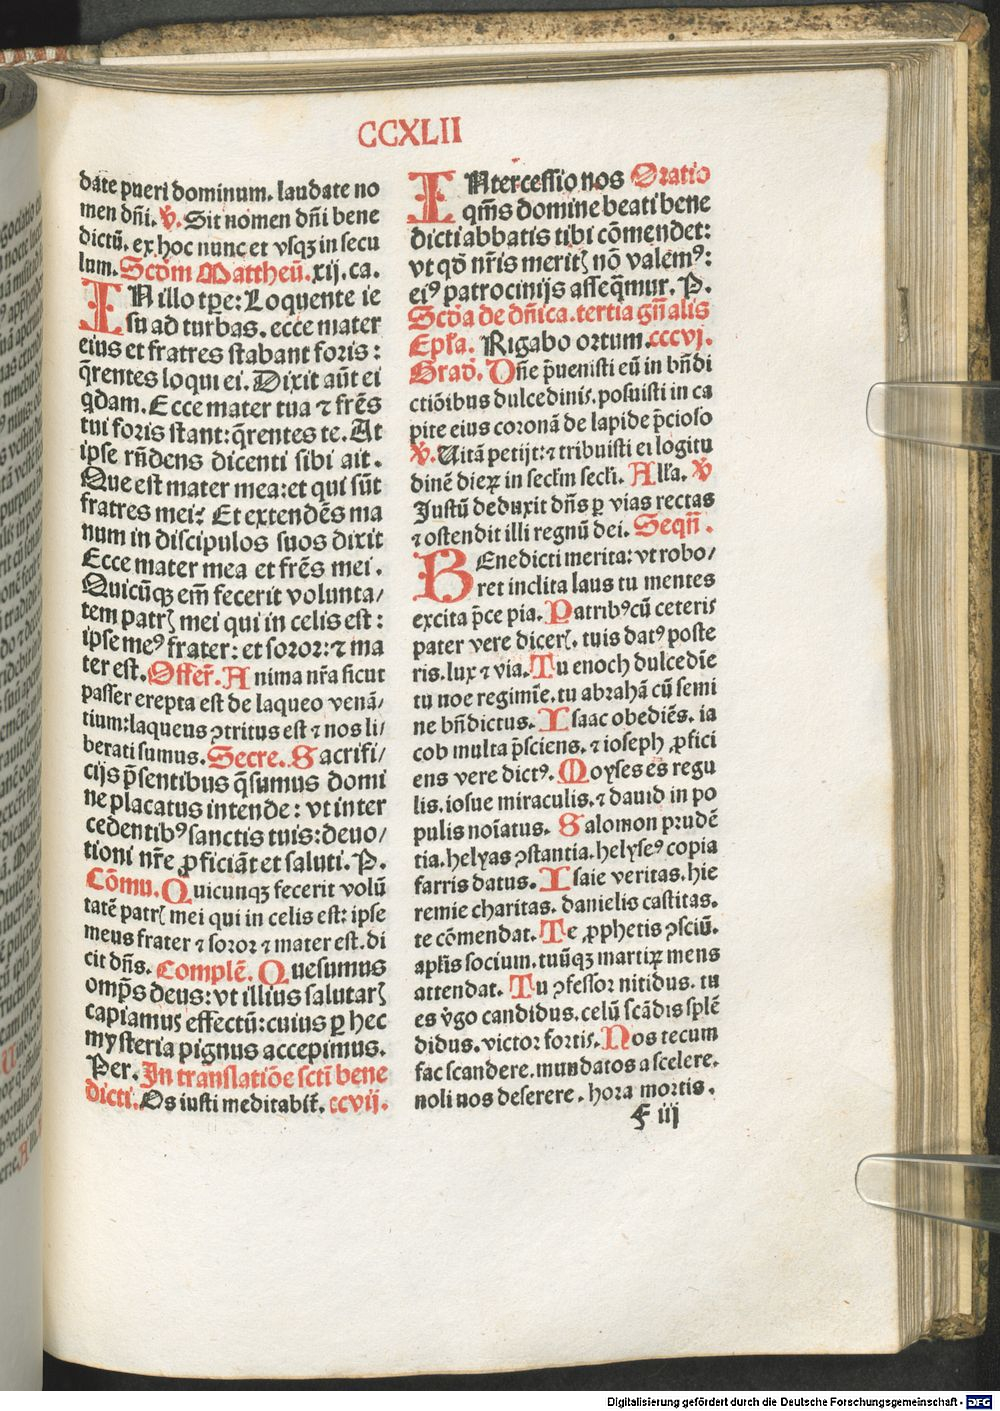 CCXLII
date pueri dominum. laudate no
men dñi. ℣. Sit nomen dñi bene
dictū. ex hoc nunc et vsqꝫ in secu
lum. Scdm Mattheū. xij. ca.
IN illo tꝑe: Loquente ie
su ad turbas. ecce mater
eius et fratres stabant foris:
q̄rentes loqui ei. Dixit aūt ei
qdam. Ecce mater tua ⁊ frēs
tui foris stant: q̄rentes te. At
ipse rn̄dens dicenti sibi ait.
Que est mater mea: et qui sūt
fratres mei: Et extendēs ma
num in discipulos suos dixit
Ecce mater mea et frēs mei.
Quicūqꝫ em̄ fecerit volunta/
tem patrꝭ mei qui in celis est:
ipse meꝰ frater: et soror: ⁊ ma
ter est. Offer̄. Anima nr̄a sicut
passer erepta est de laqueo venā/
tium: laqueus ꝯtritus est ⁊ nos li/
berati sumus. Secre. Sacrifi/
cijs p̄sentibus q̄sumus domi
ne placatus intende: vt inter
cedentibꝰ sanctis tuis: deuo/
tioni nr̄e ꝓficiāt et saluti. P.
Cōmu. Quicunqꝫ fecerit volū
tatē patrꝭ mei qui in celis est: ipse
meus frater ⁊ soror ⁊ mater est. di
cit dn̄s. Complē. Quesumus
omp̄s deus: vt illius salutarꝭ
capiamus effectū: cuius ꝑ hec
mysteria pignus accepimus.
Per. In translatiōe sctī bene
dicti. Os iusti meditabit̄. ccvij.
INtercessio nos Oratio
qm̄s domine beati bene
dicti abbatis tibi cōmendet:
vt qd̄ nr̄is meritꝭ nō valemꝰ:
eiꝰ patrocinijs asseq̄mur. P.
Scd̄a de dn̄ica. tertia gn̄alis
Epl̄a. Rigabo ortum. cccvj.
Grad̄. Dn̄e p̄uenisti eū in bn̄di
ctiōibus dulcedinis. posuisti in ca
pite eius coronā de lapide p̄cioso
℣. Uitā petijt: ⁊ tribuisti ei lōgitu
dinē dieꝝ in secl̄m secl̄i. All̄a. ℣
Justū deduxit dn̄s ꝑ vias rectas
⁊ ostendit illi regnū dei. Seqn̄.
BEnedicti merita: vt robo/
ret inclita laus tu mentes
excita p̄ce pia. Patribꝰ cū ceteris
pater vere dicerꝭ. tuis datꝰ poste
ris. lux ⁊ via. Tu enoch dulcedīe
tu noe regimīe. tu abrahā cū semi
ne bn̄dictus. Isaac obediēs. ia
cob multa p̄sciens. ⁊ ioseph ꝓfici
ens vere dictꝰ. Moyses es regu
lis. iosue miraculis. ⁊ dauid in po
pulis noīatus. Salomon prudē
tia. helyas ꝯstantia. helyseꝰ copia
farris datus. Isaie veritas. hie
remie charitas. danielis castitas.
te cōmendat. Te ꝓphetis ꝯsciū.
apl̄is socium. tuūqꝫ martiꝝ mens
attendat. Tu ꝯfessor nitidus. tu
es v̄go candidus. celū scādis splē
didus. victor fortis. Nos tecum
fac scandere. mundatos a scelere.
noli nos deserere. hora mortis.
F iij
Digitalisierung gefördert durch die Deutsche Forschungsgemeinschaft - DFG